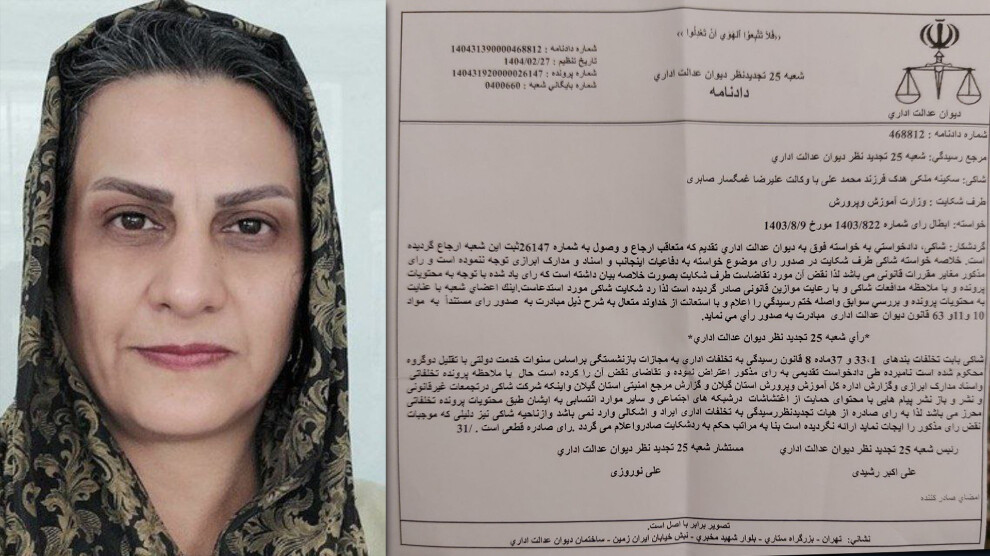 ((فَلاَ تَتَّبِعوُا اَلهَوي اَنْ تَعْدِلُوا ))
شماره دادنامه : 140431390000468812
تاریخ تنظیم : 1404/02/27
شماره پرونده : 140431920000026147
شماره بایگانی شعبه : 0400660
شعبه 25 تجدیدنظر دیوان عدالت اداري
دادنامه
دیوان عدالت اداري
شماره دادنامه : 468812
مرجع رسیدگی: شعبه 25 تجدید نظر دیوان عدالت اداري
شاکی: سکینه ملکی هدک فرزند محمد علی با وکالت علیرضا غمگسار صابری
طرف شکایت : وزارت آموزش وپرورش
خواسته: ابطال رای شماره 1403/822 مورخ 1403/8/9
گردشکار: شاکی، دادخواستي به خواسته فوق به دیوان عدالت اداري تقدیم که متعاقب ارجاع و وصول به شماره 26147ثبت این شعبه ارجاع گردیده
است. خلاصه خواسته شاکی طرف شکایت در صدور رای موضوع خواسته به دفاعیات اینجانب و اسناد و مدارک ابرازی توجه ننموده است و رای
مذکور مغایر مقررات قانونی می باشد لذا نقض آن مورد تقاضاست طرف شکایت بصورت خلاصه بیان داشته است که رای یاد شده با توجه به محتویات
پرونده و با ملاحظه مدافعات شاکی و با رعایت موازین قانونی صادر گردیده است لذا رد شکایت شاکی مورد استدعاست.اینك اعضاي شعبه با عنایت
به محتویات پرونده و بررسي سوابق واصله ختم رسیدگي را اعلام و با استعانت از خداوند متعال به شرح ذیل مبادرت به صدور رای مستنداً به مواد
10 و11و 63 قانون دیوان عدالت اداری مبادرت به صدور رأي مي نماید.
*رأي شعبه 25 تجدید نظر دیوان عدالت اداري*
شاکی بابت تخلفات بندهای 1،33 و 37ماده 8 قانون رسیدگی به تخلفات اداری به مجازات بازنشستگی براساس سنوات خدمت دولتی با تقلیل دوگروه
محکوم شده است نامبرده طی دادخواست تقدیمی به رای مذکور اعتراض نموده و تقاضای نقض آن را کرده است حال با ملاحظه پرونده تخلفاتی
واسناد مدارک ابرازی وگزارش اداره کل آموزش وپرورش استان گیلان و گزارش مرجع امنیتی استان گیلان واینکه شرکت شاکی درتجمعات غیرقانونی
و نشر و باز نشر پیام هایی با محتوای حمایت از اغتشاشات درشبکه های اجتماعی و سایر موارد انتسابی به ایشان طبق محتویات پرونده تخلفاتی
محرز می باشد لذا به رای صادره از هیات تجدیدنظررسیدگی به تخلفات اداری ایراد و اشکالی وارد نمی باشد وازناحیه شاکی نیز دلیلی که موجبات
نقض رای مذکور را ایجاب نماید ارائه نگردیده است بنا به مراتب حکم به ردشکایت صادرواعلام می گردد .رای صادره قطعی است . /31
رئیس شعبه 25 تجدید نظر دیوان عدالت اداري
مستشار شعبه 25 تجدید نظر دیوان عدالت اداري
علی اکبر رشیدی
علی نوروزی
امضاي صادر کننده
تصویر برابر با اصل است.
نشانی: تهران - بزرگراه ستاري - بلوار شهید مخبري - نبش خیابان ایران زمین - ساختمان دیوان عدالت اداري